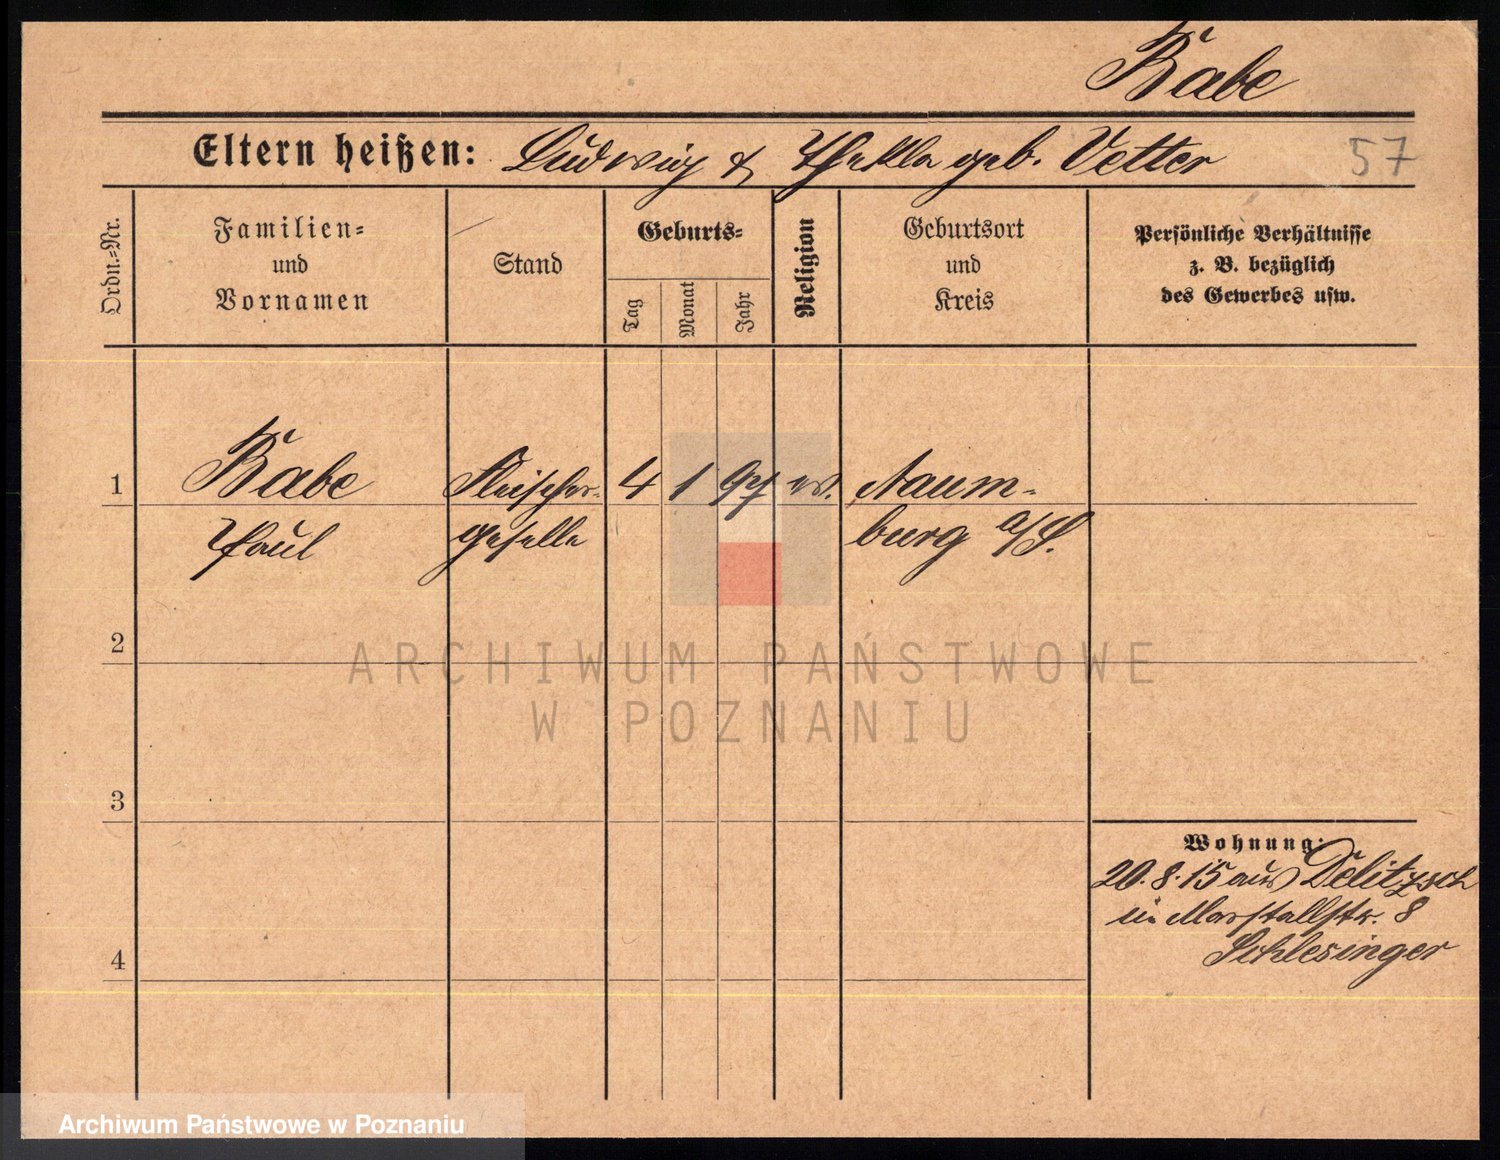 Rabe
Eltern heißen: Ludwig & Thekla geb. Vetter
57
Ordn.-Nr.
Familien-
und
Vornamen
Stand
Geburts-
Tag
Monat
Jahr
Religion
Geburtsort
und
Kreis
Persönliche Verhältnisse
z. B. bezüglich
des Gewerbes usw.
1 Rabe Fleischer- 4 1 97 ev. Naum-
Paul geselle burg a/S.
2
ARCHIWUM PAŃSTWOWE
W POZNANIU
3
Wohnung:
20.8.15 aus Delitzsch
in Marstallstr. 8
Schlesinger
4
Archiwum Państwowe w Poznaniu